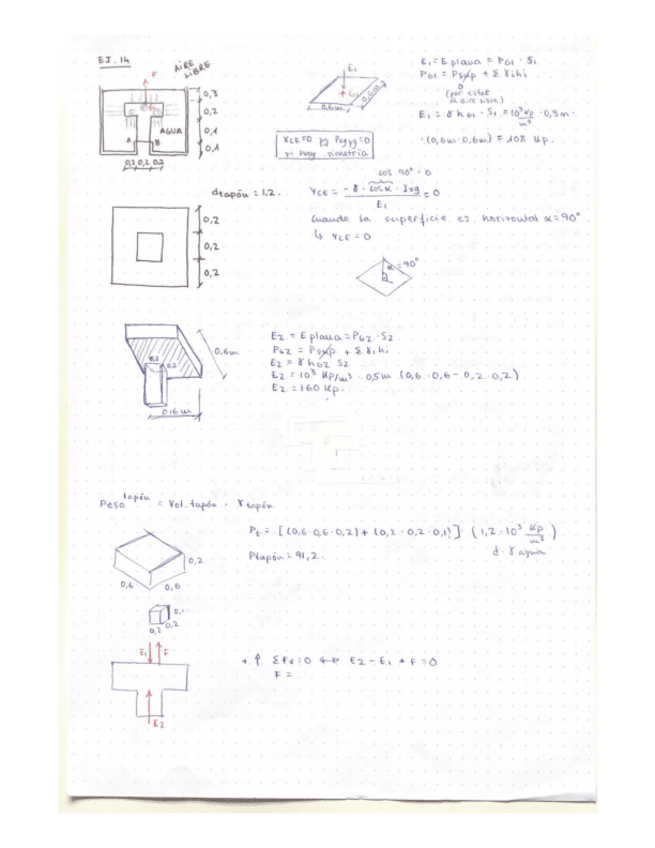 EJ. 14
AIRE LIBRE
F
0,3
0,2
AGUA
0,1
A
B
0,1
0,2 0,2 0,2
E1
0,6m
0,6m
E1 = E plana = PG1 · S1
PG1 = Psup + Σ γi hi
0
(por estar al aire libre)
E1 = γ hG1 · S1 = 10³ kp/m³ · 0,3m ·
· (0,6m · 0,6m) = 108 kp.
XCE=0 pq Pxgyg=0
si hay simetria
dtapón = 1,2.
cos 90° = 0
YCE = -γ · cos α · Ixg / E1 = 0
Cuando la superficie es horizontal α = 90°
↳ YCE = 0
0,2
0,2
0,2
α = 90°
0,6m
0,2
0,2
0,6m
E2 = E plana = PG2 · S2
PG2 = Psup + Σ γi hi
E2 = γ hG2 S2
E2 = 10³ kp/m³ · 0,5m (0,6 · 0,6 - 0,2 · 0,2)
E2 = 160 kp.
Peso tapón = Vol. tapón · γ tapón
Pt = [(0,6 · 0,6 · 0,2) + (0,2 · 0,2 · 0,1)] (1,2 · 10³ kp/m³)
d. γ agua
Ptapón = 91,2.
0,2
0,6
0,6
0,1
0,2
0,2
E1
F
E2
+ ↑ ΣFv = 0 ↔ E2 - E1 + F = 0
F =